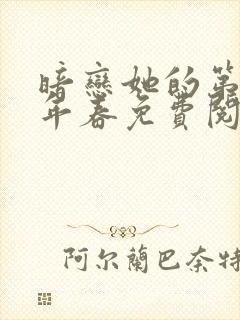 暗戀她的第
年春免費閱
阿尔蘭巴奈特